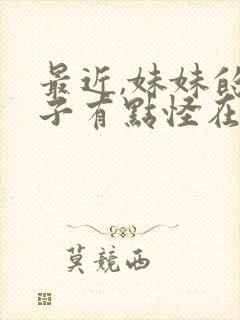 最近,妹妹的
子有點怪在
莫競西